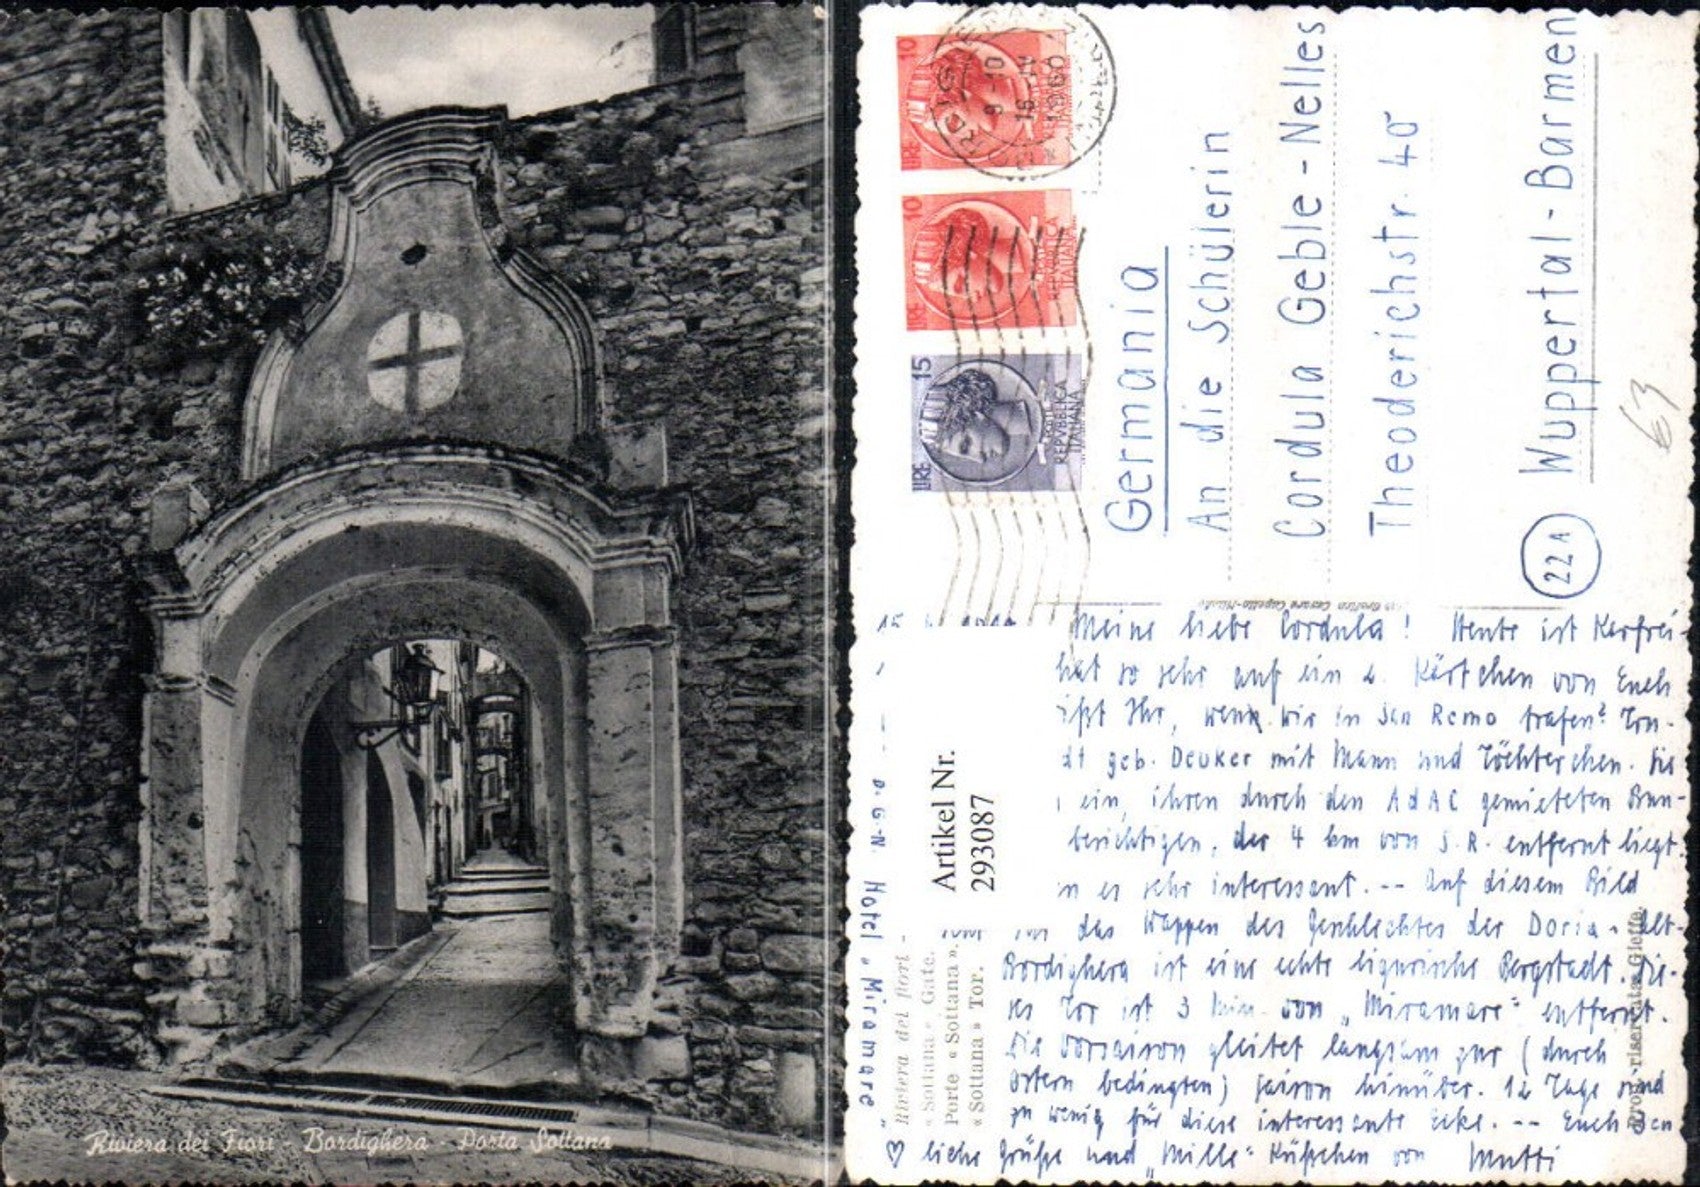 Riviera dei Fiori - Bordighera - Porta Sottana
10
LIRE
REPVBBLICA
ITALIANA
10
LIRE
REPVBBLICA
ITALIANA
15
LIRE
REPVBBLICA
ITALIANA
BORDIGHERA
9-10
16-IV
1960
Germania
An die Schülerin
Cordula Geble-Nelles
Theoderichstr. 40
22A Wuppertal-Barmen
63
Meine liebe Cordula! Heute ist Karfrei-
hat so sehr auf ein 2. Kärtchen von Euch
Ihr, wenn wir in San Remo trafen?
geb. Deuker mit Mann und Töchterchen. Sie
ein, ihren durch den AdAC gemieteten Bun-
berichtigen, der 4 km von S.R. entfernt liegt.
es sehr interessant. -- Auf diesem Bild
das Wappen des Geschlechtes der Doria. Alt-
Bordighera ist eine echte ligurische Bergstadt. Die-
ses Tor ist 3 Min. von „Miramare" entfernt.
Die Vorsaison gleitet langsam zur (durch
Ostern bedingten) Saison hinüber. 12 Tage sind
zu wenig für diese interessante Ecke. -- Euch allen
liche Grüße und „Mille" Küßchen von Mutti
D.G-N. Hotel „Miramare"
Artikel Nr.
293087
Riviera dei Fiori -
« Sottana » Gate.
Porte « Sottana ».
« Sottana » Tor.